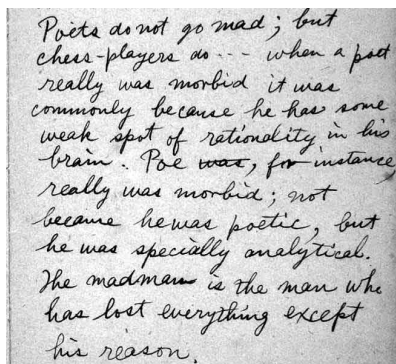 Poets do not go mad; but
chess-players do --- when a poet
really was morbid it was
commonly because he has some
weak spot of rationality in his
brain. Poe was, for instance,
really was morbid; not
because he was poetic, but
he was specially analytical.
The madman is the man who
has lost everything except
his reason.